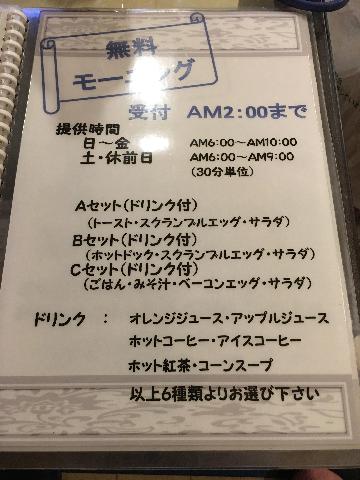 無料
モーニング
受付 AM2:00まで
提供時間
日～金 AM6:00～AM10:00
土・休前日 AM6:00～AM9:00
(30分単位)
Aセット(ドリンク付)
(トースト・スクランブルエッグ・サラダ)
Bセット(ドリンク付)
(ホットドック・スクランブルエッグ・サラダ)
Cセット(ドリンク付)
(ごはん・みそ汁・ベーコンエッグ・サラダ)
ドリンク : オレンジジュース・アップルジュース
ホットコーヒー・アイスコーヒー
ホット紅茶・コーンスープ
以上6種類よりお選び下さい